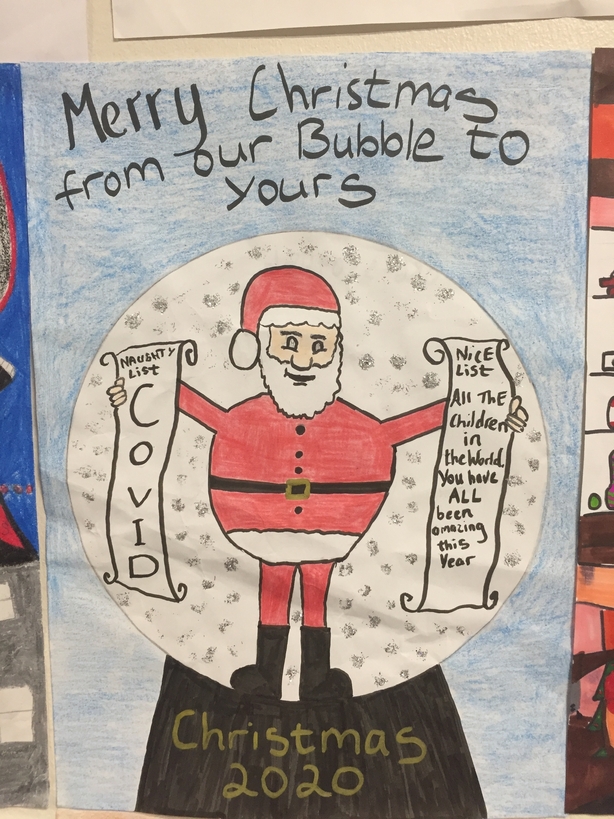 Merry Christmas
from our Bubble to
yours
NAUGHTY
List
C
O
V
I
D
NiCE
List
All ThE
Children
in
the World.
You have
ALL
been
amazing
this
Year
Christmas
2020